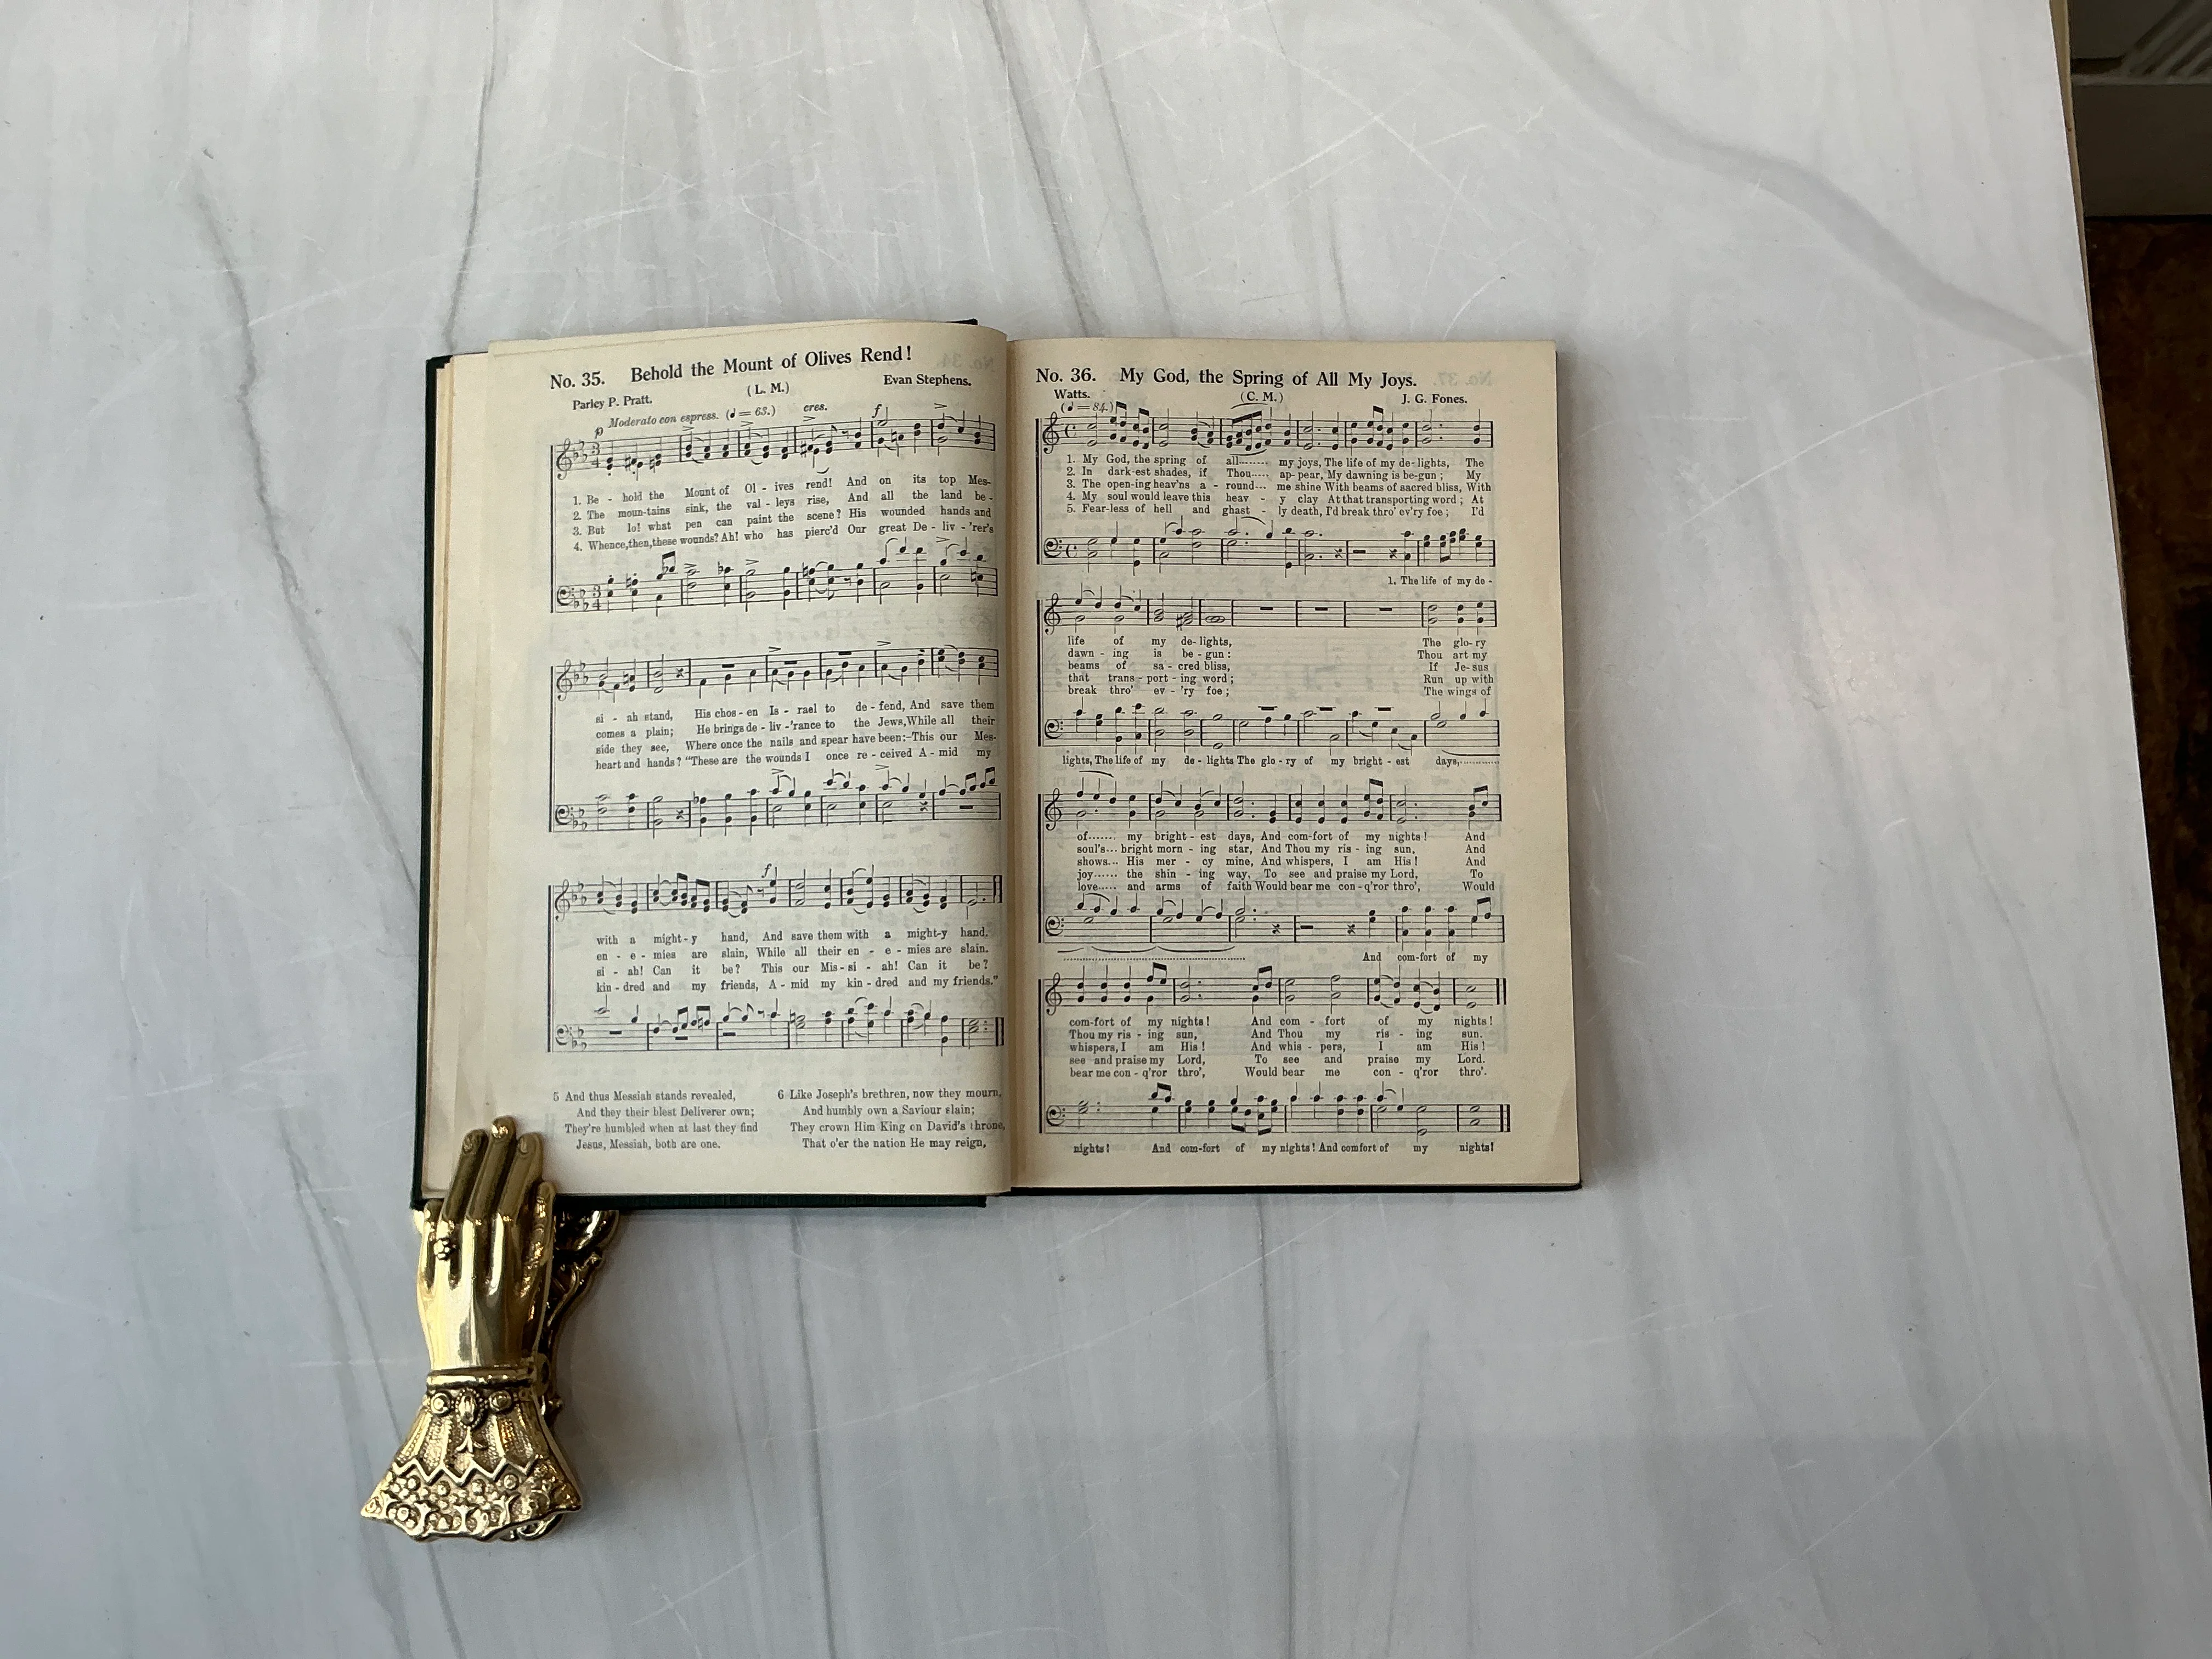 No. 35. Behold the Mount of Olives Rend!
(L. M.)
Parley P. Pratt. Evan Stephens.
Moderato con espress. (♩= 63.) cres. f
p
1. Be - hold the Mount of Ol - ives rend! And on its top Mes-
2. The moun-tains sink, the val - leys rise, And all the land be -
3. But lo! what pen can paint the scene? His wounded hands and
4. Whence,then,these wounds? Ah! who has pierc'd Our great De - liv - 'rer's
si - ah stand, His chos - en Is - rael to de - fend, And save them
comes a plain; He brings de - liv -'rance to the Jews,While all their
side they see, Where once the nails and spear have been:-This our Mes-
heart and hands? "These are the wounds I once re - ceived A - mid my
f
with a might - y hand, And save them with a might-y hand.
en - e - mies are slain, While all their en - e - mies are slain.
si - ah! Can it be? This our Mis - si - ah! Can it be?
kin - dred and my friends, A - mid my kin - dred and my friends."
5 And thus Messiah stands revealed,
And they their blest Deliverer own;
They're humbled when at last they find
Jesus, Messiah, both are one.
6 Like Joseph's brethren, now they mourn,
And humbly own a Saviour slain;
They crown Him King on David's throne,
That o'er the nation He may reign,
No. 36. My God, the Spring of All My Joys.
Watts. (C. M.) J. G. Fones.
(♩= 84.)
1. My God, the spring of all........ my joys, The life of my de - lights, The
2. In dark-est shades, if Thou..... ap - pear, My dawning is be - gun; My
3. The open-ing heav'ns a - round... me shine With beams of sacred bliss, With
4. My soul would leave this heav - y clay At that transporting word; At
5. Fear-less of hell and ghast - ly death, I'd break thro' ev'ry foe; I'd
1. The life of my de -
life of my de - lights, The glo - ry
dawn - ing is be - gun: Thou art my
beams of sa - cred bliss, If Je - sus
that trans - port - ing word; Run up with
break thro' ev - 'ry foe; The wings of
lights, The life of my de - lights The glo - ry of my bright - est days,............
of....... my bright - est days, And com-fort of my nights! And
soul's... bright morn - ing star, And Thou my ris - ing sun, And
shows... His mer - cy mine, And whispers, I am His! And
joy...... the shin - ing way, To see and praise my Lord, To
love..... and arms of faith Would bear me con - q'ror thro', Would
And com-fort of my
com-fort of my nights! And com - fort of my nights!
Thou my ris - ing sun, And Thou my ris - ing sun.
whispers, I am His! And whis - pers, I am His!
see and praise my Lord, To see and praise my Lord.
bear me con - q'ror thro', Would bear me con - q'ror thro'.
nights! And com-fort of my nights! And comfort of my nights!